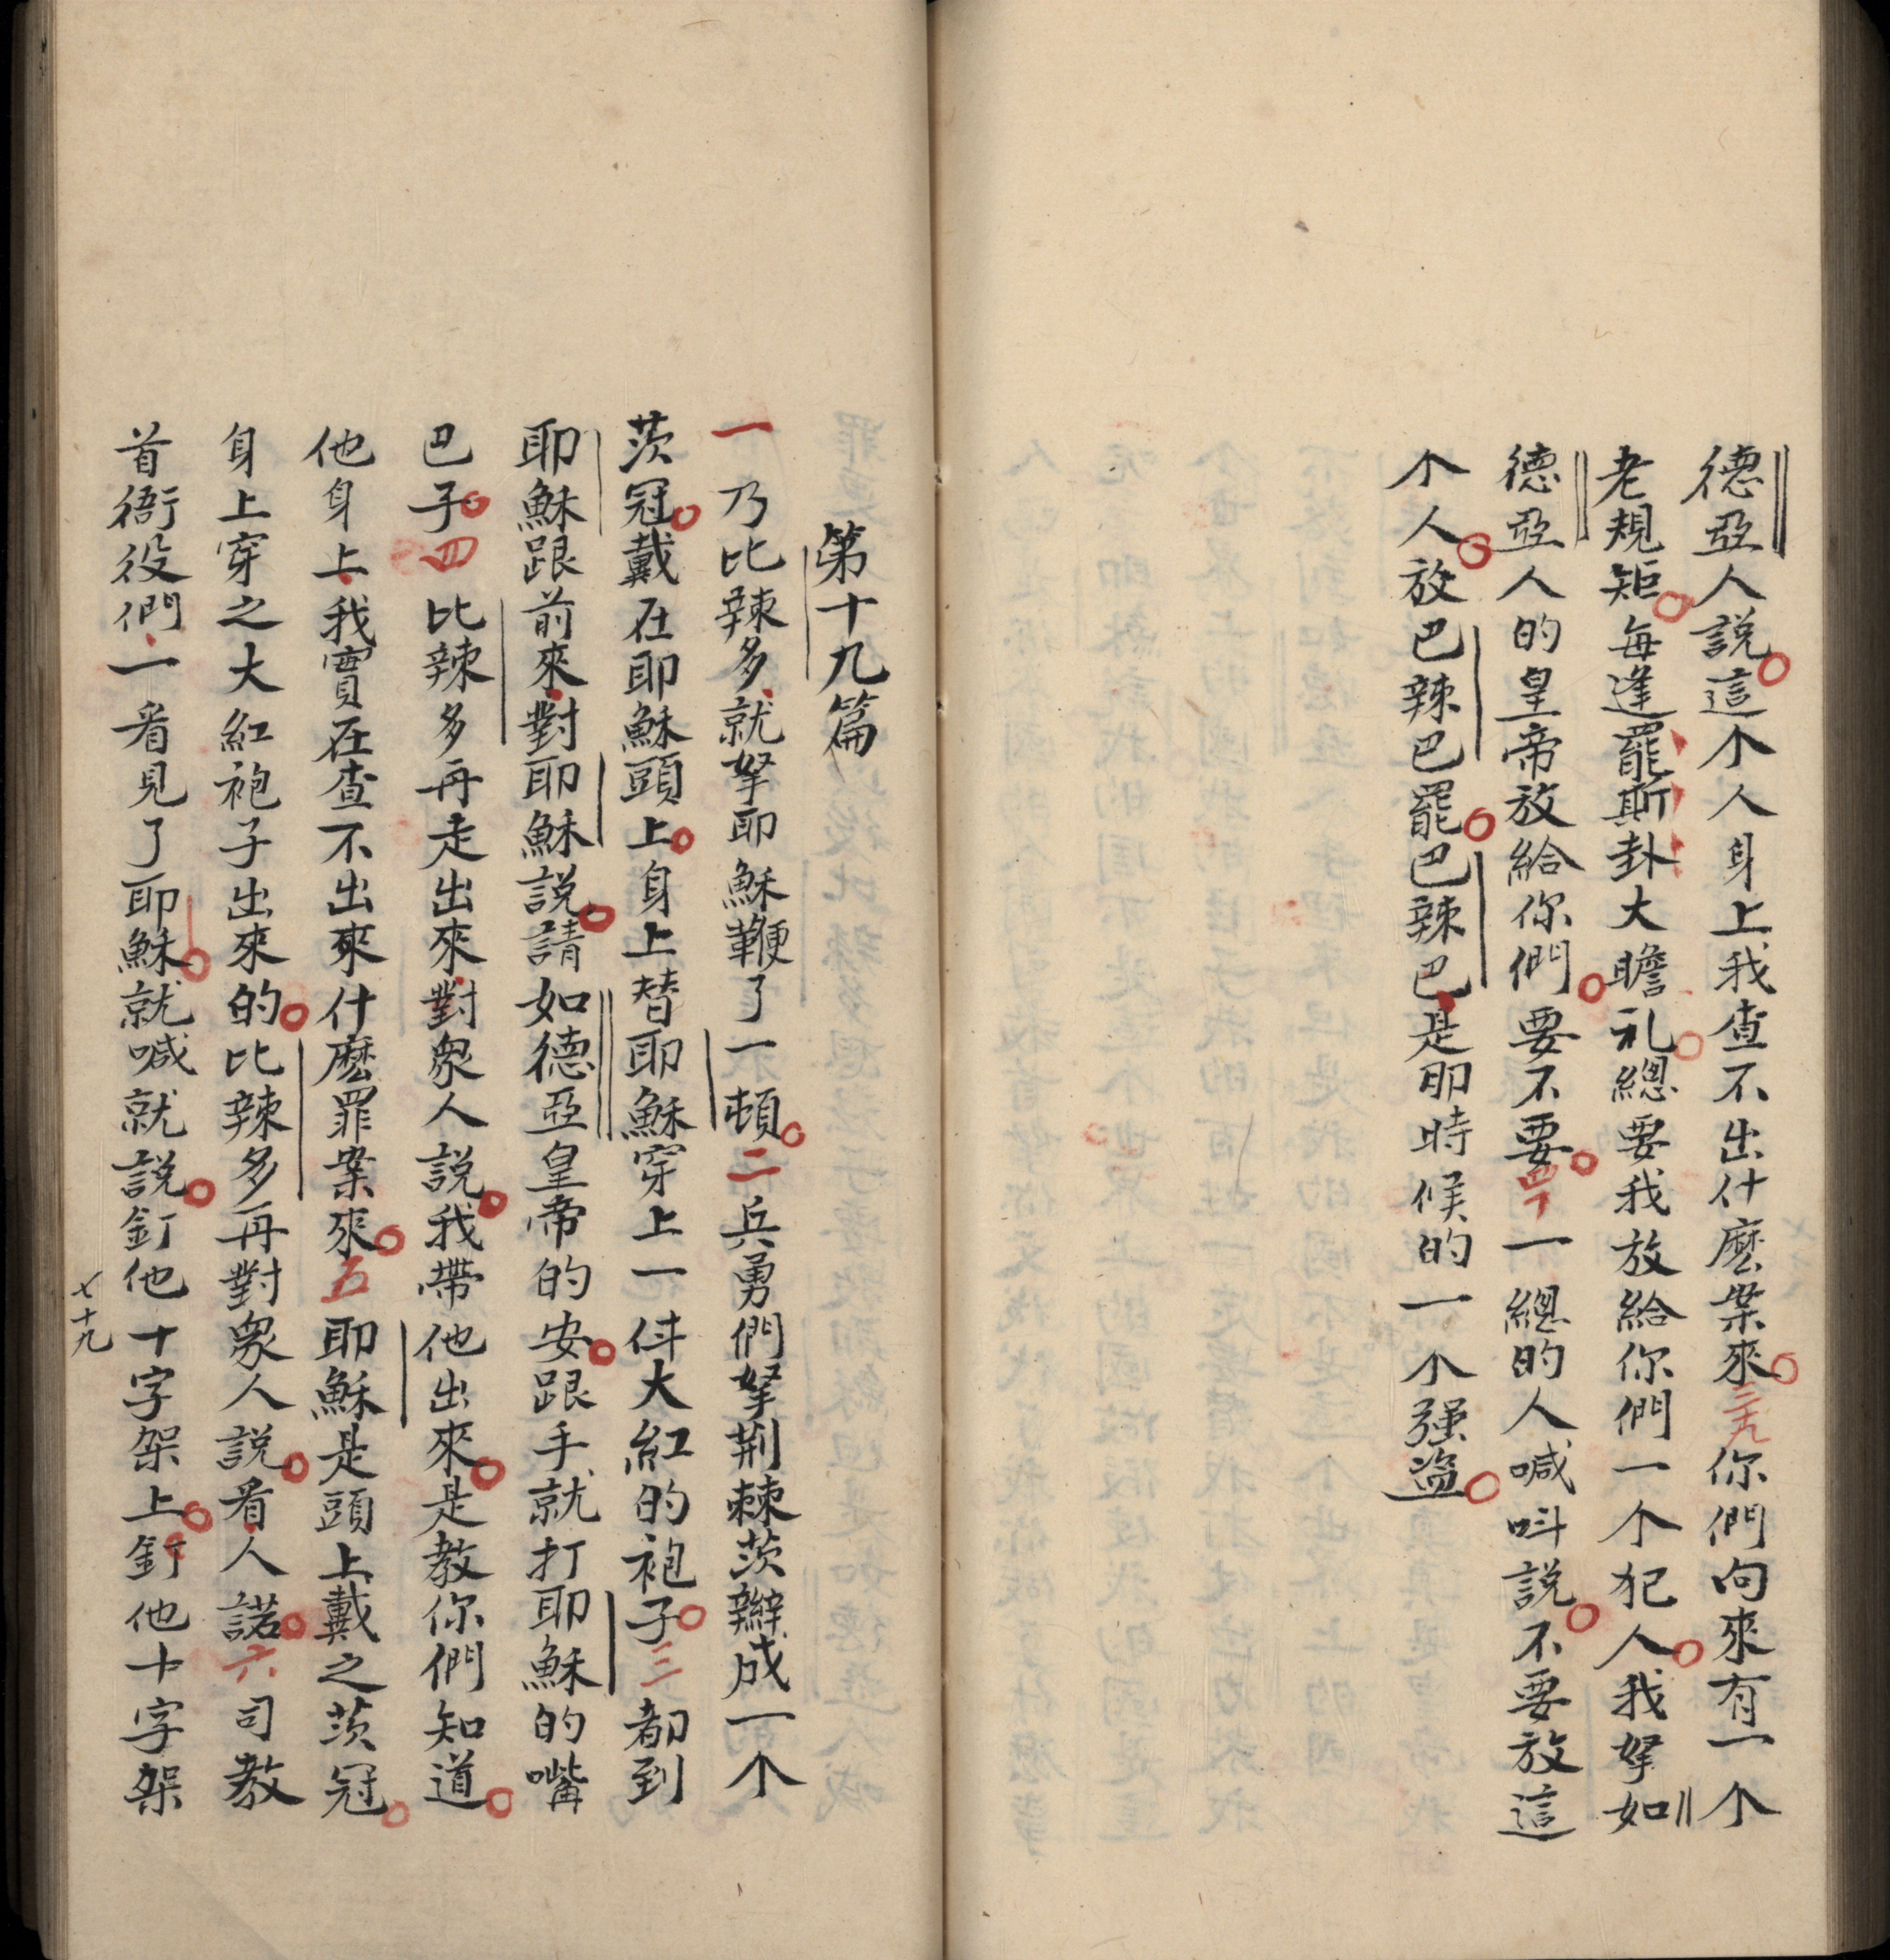 德亞人說這个人身上我查不出什麽案來三九你們向來有一个
老規矩每逢罷斯卦大瞻礼總要我放給你們一个犯人我拏如
德亞人的皇帝放給你們要不要四十一總的人喊呌說不要放這
个人放巴辣巴罷巴辣巴是那時候的一个强盗
第十九篇
一乃比辣多就拏耶穌鞭了一頓二兵勇們拏荆棘茨辮成一个
茨冠戴在耶穌頭上身上替耶穌穿上一件大紅的袍子三都到
耶穌跟前來對耶穌說請如德亞皇帝的安跟手就打耶穌的嘴
巴子四比辣多再走出來對衆人說我帶他出來是教你們知道
他身上我實在查不出來什麽罪案來五耶穌是頭上戴之茨冠
身上穿之大紅袍子出來的比辣多再對衆人說看人諾六司教
首衙役們一看見了耶穌就喊就說釘他十字架上釘他十字架
七十九